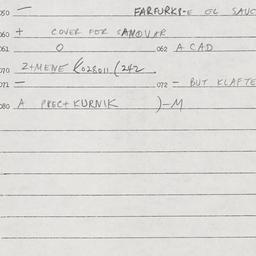 050 — FARFURKI-E GL SAUC
060 + COVER FOR SAMOVAR
061 O 062 A CAD
070 Z+MENE (028011 (242
071 — 072 — BUT KLAFTE
080 A PREC+ KURNIK )-M